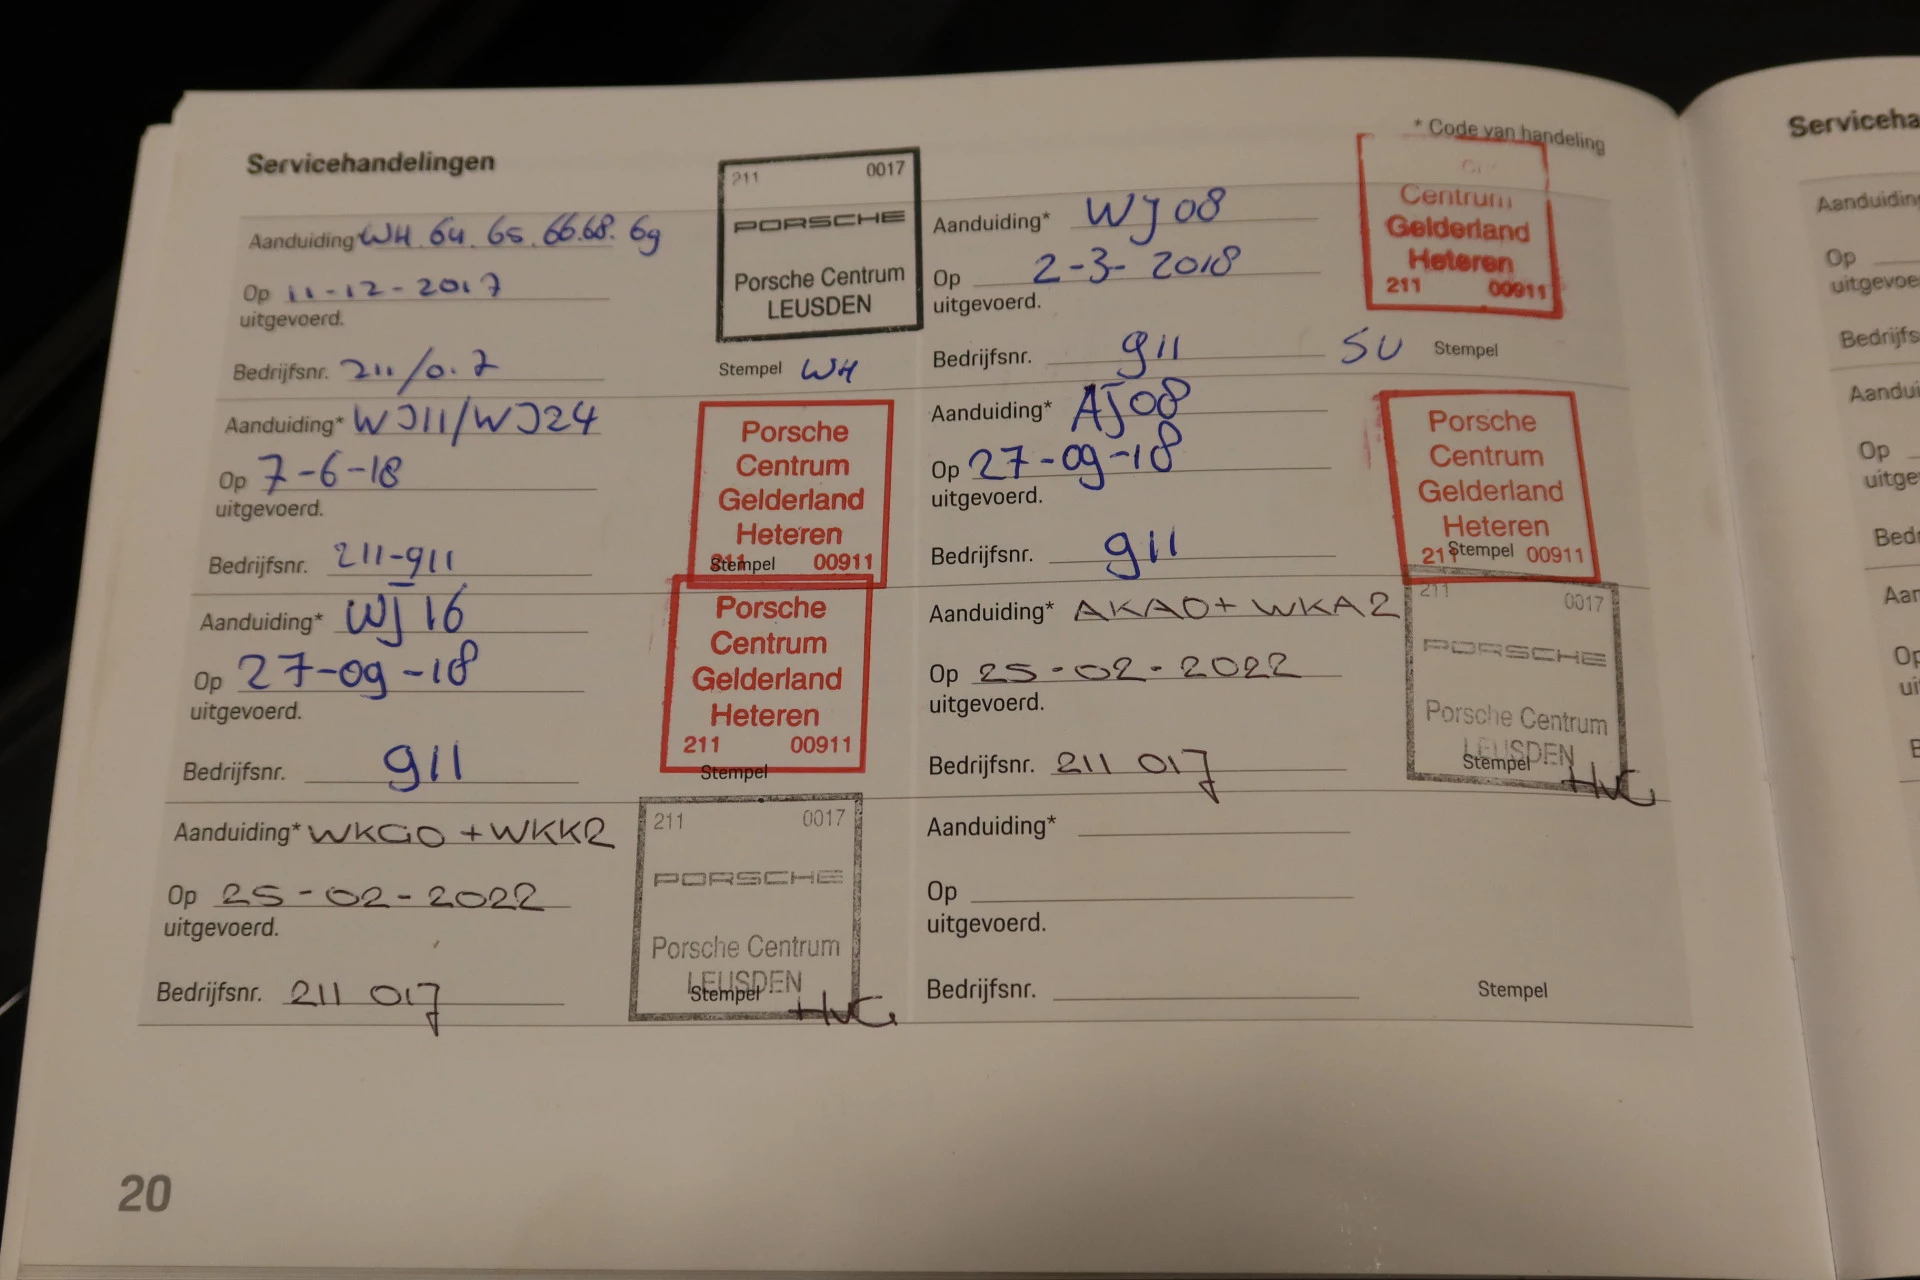 Servicehandelingen
* Code van handeling
Aanduiding* WH. 64. 65. 66.68. 69
Op 11-12-2017
uitgevoerd.
Bedrijfsnr. 211/0.7
211 0017
PORSCHE
Porsche Centrum
LEUSDEN
Stempel WH
Aanduiding* WJ08
Op 2-3-2018
uitgevoerd.
Bedrijfsnr. 911 SU
Centrum
Gelderland
Heteren
211 00911
Stempel
Aanduiding* WJ11/WJ24
Op 7-6-18
uitgevoerd.
Bedrijfsnr. 211-911
Porsche
Centrum
Gelderland
Heteren
211 00911
Stempel
Aanduiding* AJ08
Op 27-09-18
uitgevoerd.
Bedrijfsnr. 911
Porsche
Centrum
Gelderland
Heteren
211 00911
Stempel
Aanduiding* WJ16
Op 27-09-18
uitgevoerd.
Bedrijfsnr. 911
Porsche
Centrum
Gelderland
Heteren
211 00911
Stempel
Aanduiding* AKA0+WKA2
Op 25-02-2022
uitgevoerd.
Bedrijfsnr. 211 017
211 0017
PORSCHE
Porsche Centrum
LEUSDEN
Stempel HvG
Aanduiding* WKG0+WKK2
Op 25-02-2022
uitgevoerd.
Bedrijfsnr. 211 017
211 0017
PORSCHE
Porsche Centrum
LEUSDEN
Stempel HvG
Aanduiding*
Op
uitgevoerd.
Bedrijfsnr.
Stempel
20